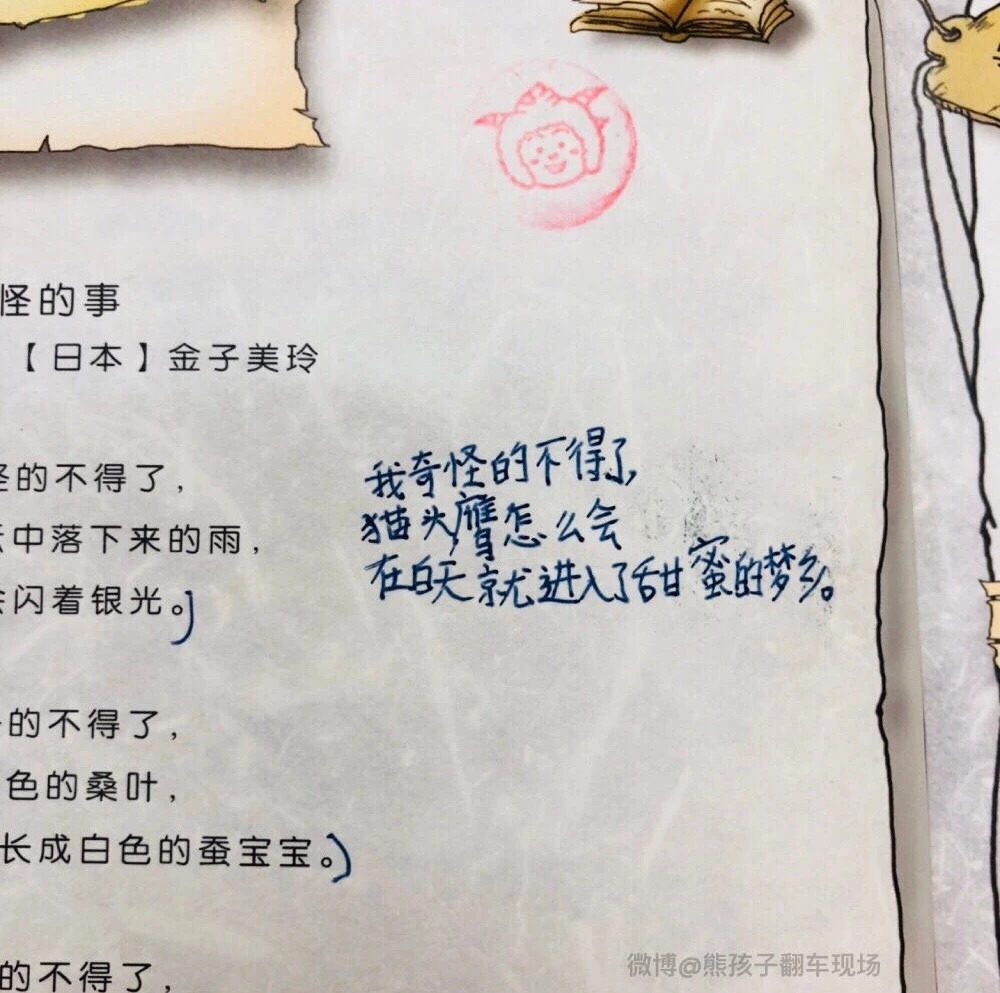 怪的事
【日本】金子美玲
怪的不得了，
中落下来的雨，
闪着银光。
的不得了，
色的桑叶，
长成白色的蚕宝宝。
的不得了，
我奇怪的不得了，
猫头鹰怎么会
在白天就进入了甜蜜的梦乡。
微博@熊孩子翻车现场